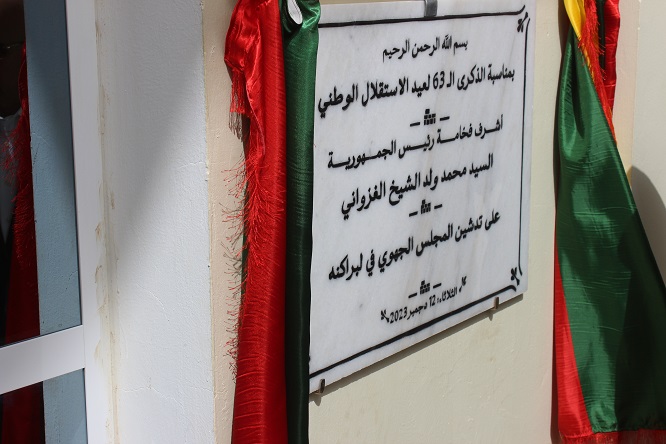 بسم الله الرحمن الرحيم
بمناسبة الذكرى الـ 63 لعيد الاستقلال الوطني
اشرف فخامة رئيس الجمهورية
السيد محمد ولد الشيخ الغزواني
على تدشين المجلس الجهوي في لبراكنه
الثلاثاء: 12 دجمبر 2023